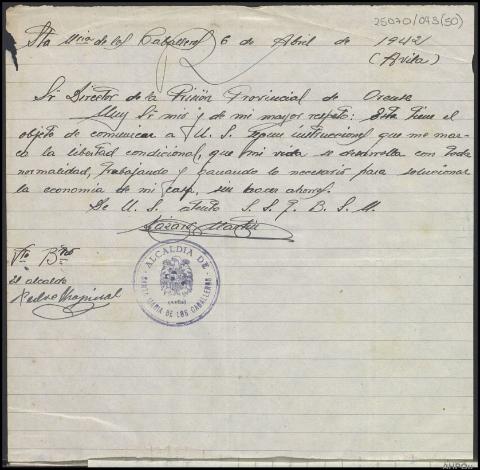 25070/093(50)
Sta Mria de los Caballeros 6 de Abril de 1942
(Avila)
Sr Director de la Prisión Provincial de Orense
Muy Sr mio y de mi mayor respeto: Esta tiene el
objeto de comunicar a U. S. segun instrucciones que me mar-
ca la libertad condicional, que mi vida se desarrolla con toda
normalidad, trabajando y ganando lo necesario para solucionar
la economia de mi casa, sin hacer ahorros.
De U. S. atento S. S. q. B. S. M.
Lazaro Martin
Vto Bno
El alcalde
Pedro
ALCALDIA DE
SANTA MARIA DE LOS CABALLEROS
(AVILA)
AHPOu